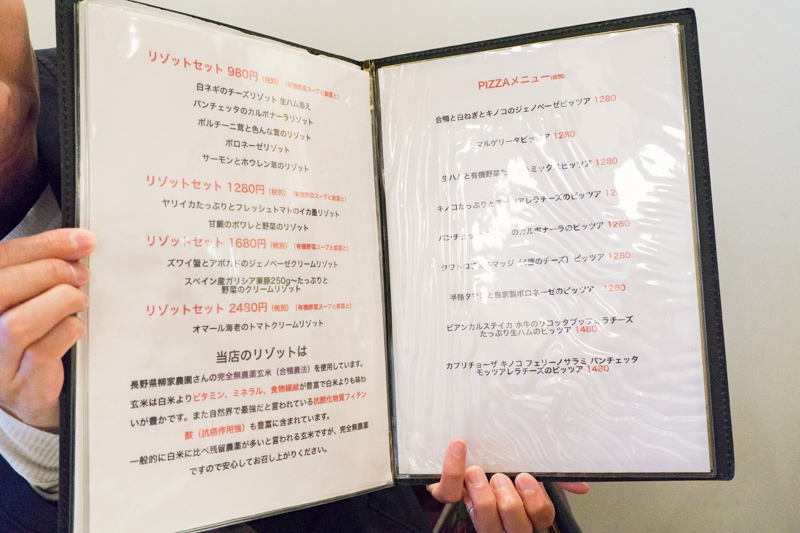 リゾットセット 980円（税別）（有機野菜スープと前菜と）
白ネギのチーズリゾット 生ハム添え
パンチェッタのカルボナーラリゾット
ポルチーニ茸と色んな茸のリゾット
ボロネーゼリゾット
サーモンとホウレン草のリゾット
リゾットセット 1280円（税別）（有機野菜スープと前菜と）
ヤリイカたっぷりとフレッシュトマトのイカ墨リゾット
甘鯛のポワレと野菜のリゾット
リゾットセット 1680円（税別）（有機野菜スープと前菜と）
ズワイ蟹とアボカドのジェノベーゼクリームリゾット
スペイン産ガリシア栗豚250g〜たっぷりと
野菜のクリームリゾット
リゾットセット 2480円（税別）（有機野菜スープと前菜と）
オマール海老のトマトクリームリゾット
当店のリゾットは
長野県柳家農園さんの完全無農薬玄米（合鴨農法）を使用しています。
玄米は白米よりビタミン、ミネラル、食物繊維が豊富で白米よりも味わ
いが豊かです。また自然界で最強だと言われている抗酸化物質フィチン
酸（抗癌作用強）も豊富に含まれています。
一般的に白米に比べ残留農薬が多いと言われる玄米ですが、完全無農薬
ですので安心してお召し上がりください。
PIZZAメニュー(税別)
合鴨と白ねぎとキノコのジェノベーゼピッツア 1280
マルゲリータピッツア 1280
生ハムと有機野菜た ミックスピッツア 1280
キノコたっぷりと アレラチーズのピッツア
パンチェッ のカルボナーラのピッツア 1280
クワトロフォルマッジ（4種のチーズ）ピッツア 1280
半熟タマゴと自家製ボロネーゼのピッツア 1280
ビアンカルステイカ 水牛のリコッタブッファラチーズ
たっぷり生ハムのピッツア 1480
カプリチョーザ キノコ フェリーノサラミ パンチェッタ
モッツアレラチーズのピッツア 1480